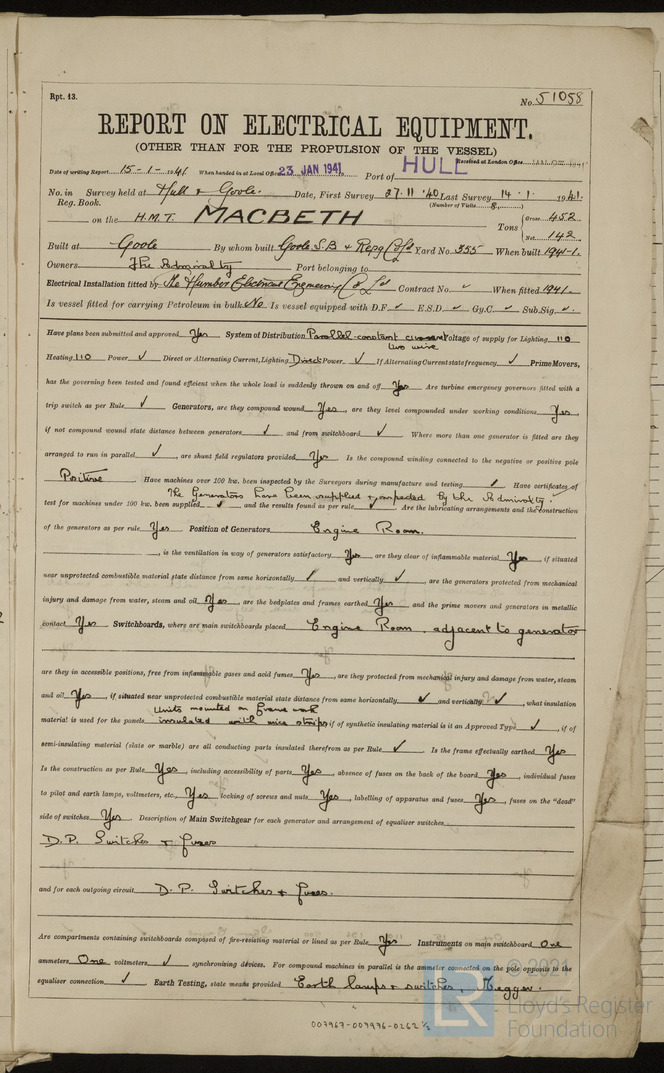 Rpt. 13.
No. 51058
REPORT ON ELECTRICAL EQUIPMENT.
(OTHER THAN FOR THE PROPULSION OF THE VESSEL)
Received at London Office
Date of writing Report 15-1-1941. When handed in at Local Office 23 JAN 1941 Port of HULL
No. in Survey held at Hull & Goole. Date, First Survey 27.11.'40 Last Survey 14.1.1941.
Reg. Book. (Number of Visits 8.)
on the H.M.T. MACBETH Tons { Gross 452
Net 142
Built at Goole By whom built Goole S.B & Repg Co Ld Yard No. 355 When built 1941-1.
Owners The Admiralty Port belonging to
Electrical Installation fitted by The Humber Electrical Engineering Co Ld Contract No. ✓ When fitted 1941.
Is vessel fitted for carrying Petroleum in bulk No Is vessel equipped with D.F. ✓ E.S.D. ✓ Gy.C. ✓ Sub.Sig. ✓.
Have plans been submitted and approved Yes System of Distribution Parallel-constant current two wire Voltage of supply for Lighting 110
Heating 110 Power ✓ Direct or Alternating Current, Lighting Direct Power ✓ If Alternating Current state frequency ✓ Prime Movers,
has the governing been tested and found efficient when the whole load is suddenly thrown on and off Yes Are turbine emergency governors fitted with a
trip switch as per Rule ✓ Generators, are they compound wound Yes, are they level compounded under working conditions Yes,
if not compound wound state distance between generators ✓ and from switchboard ✓ Where more than one generator is fitted are they
arranged to run in parallel ✓, are shunt field regulators provided Yes Is the compound winding connected to the negative or positive pole
Positive Have machines over 100 kw. been inspected by the Surveyors during manufacture and testing ✓ Have certificates of
The Generators have been supplied & inspected by the Admiralty.
test for machines under 100 kw. been supplied ✓ and the results found as per rule ✓ Are the lubricating arrangements and the construction
of the generators as per rule Yes Position of Generators Engine Room.
, is the ventilation in way of generators satisfactory Yes are they clear of inflammable material Yes, if situated
near unprotected combustible material state distance from same horizontally ✓ and vertically ✓, are the generators protected from mechanical
injury and damage from water, steam and oil Yes are the bedplates and frames earthed Yes and the prime movers and generators in metallic
contact Yes Switchboards, where are main switchboards placed Engine Room, adjacent to generator
are they in accessible positions, free from inflammable gases and acid fumes Yes, are they protected from mechanical injury and damage from water, steam
and oil Yes, if situated near unprotected combustible material state distance from same horizontally ✓ and vertically ✓, what insulation
Units mounted on frame work
material is used for the panels insulated with mica strips if of synthetic insulating material is it an Approved Type ✓, if of
semi-insulating material (slate or marble) are all conducting parts insulated therefrom as per Rule ✓ Is the frame effectually earthed Yes
Is the construction as per Rule Yes, including accessibility of parts Yes, absence of fuses on the back of the board Yes, individual fuses
to pilot and earth lamps, voltmeters, etc. Yes locking of screws and nuts Yes, labelling of apparatus and fuses Yes, fuses on the "dead"
side of switches Yes Description of Main Switchgear for each generator and arrangement of equaliser switches
D.P. Switches & fuses
and for each outgoing circuit D.P. Switches & fuses.
Are compartments containing switchboards composed of fire-resisting material or lined as per Rule Yes Instruments on main switchboard One
ammeters One voltmeters ✓ synchronising devices. For compound machines in parallel is the ammeter connected on the pole opposite to the
equaliser connection ✓ Earth Testing, state means provided Earth lamps & switches, Megger.
© 2021
LR
Lloyd's Register
Foundation
007967-007976-0262 ½